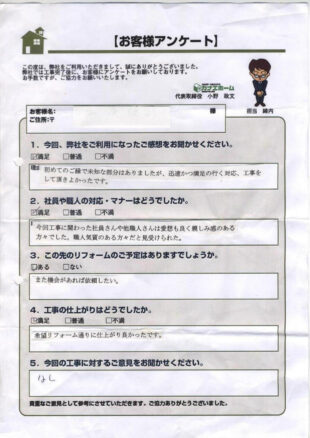 【お客様アンケート】
この度は、弊社をご利用いただきまして、誠にありがとうございました。
弊社では工事完了後に、お客様にアンケートをお願いしております。
お手数ですが、ご協力をお願いいたします。
代表取締役 小野 政文
担当 峰内
お客様名：
様
ご住所：〒
1．今回、弊社をご利用になったご感想をお聞かせください。
☑満足 □普通 □不満
初めてのご縁で未知な部分はありましたが、迅速かつ満足の行く対応、工事を
して頂きよかったです。
2．社員や職人の対応・マナーはどうでしたか。
☑満足 □普通 □不満
今回工事に関わった社員さんや他職人さんは愛想も良く親しみ感のある
方々でした。職人気質のある方々だと見受けられた。
3．この先のリフォームのご予定はありますでしょうか。
☑ある □ない
また機会があれば依頼したい。
4．工事の仕上がりはどうでしたか。
☑満足 □普通 □不満
希望リフォーム通りに仕上がり良かったです。
5．今回の工事に対するご意見をお聞かせください。
なし
貴重なご意見として参考にさせていただきます。ご協力ありがとうございました。